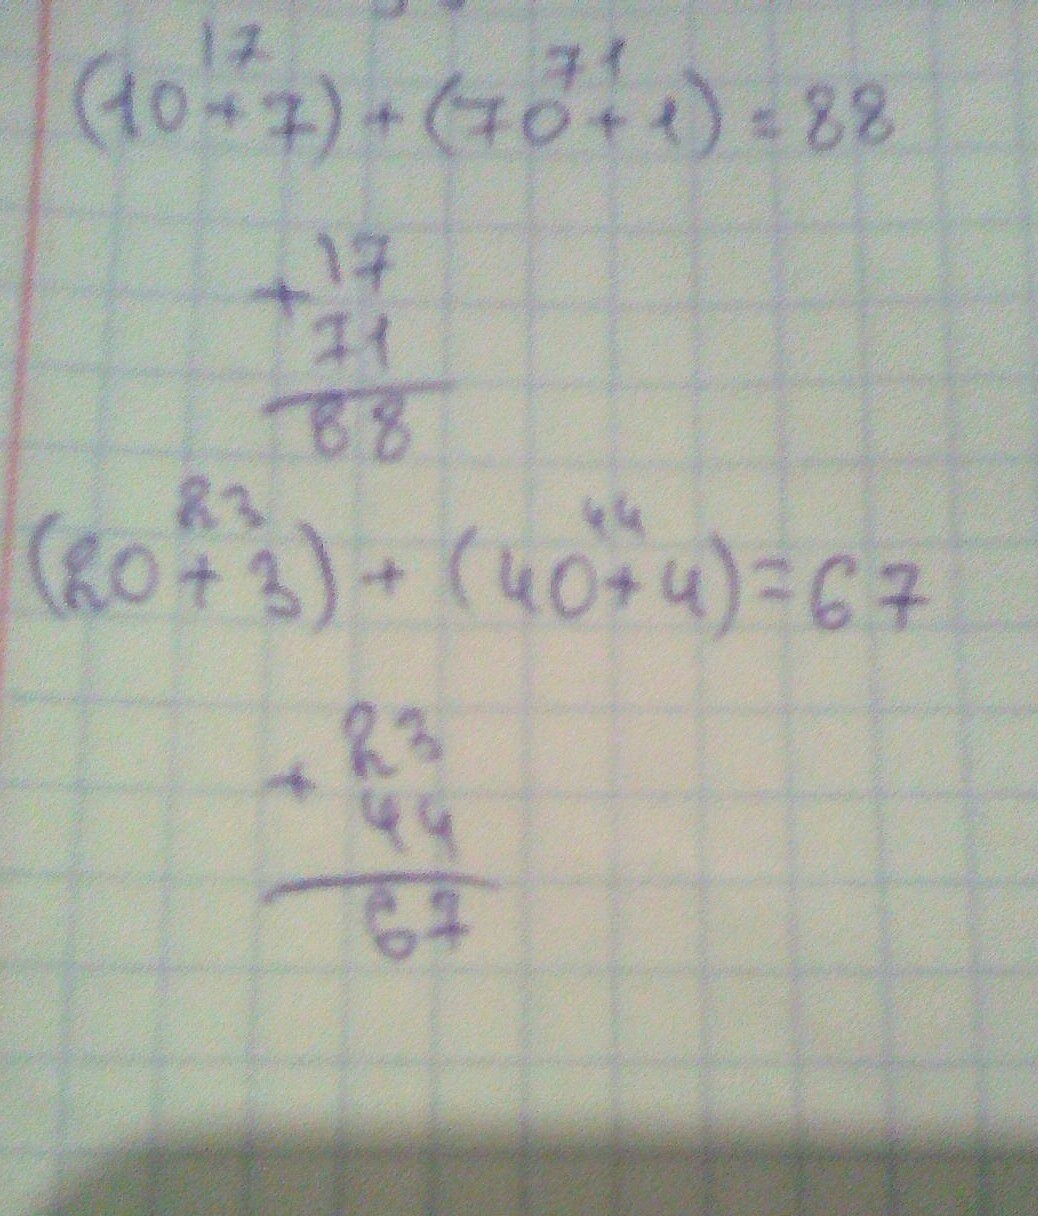 17 71
(10+7)+(70+1)=88
+17
71
88
23 44
(20+3)+(40+4)=67
+ 23
44
67